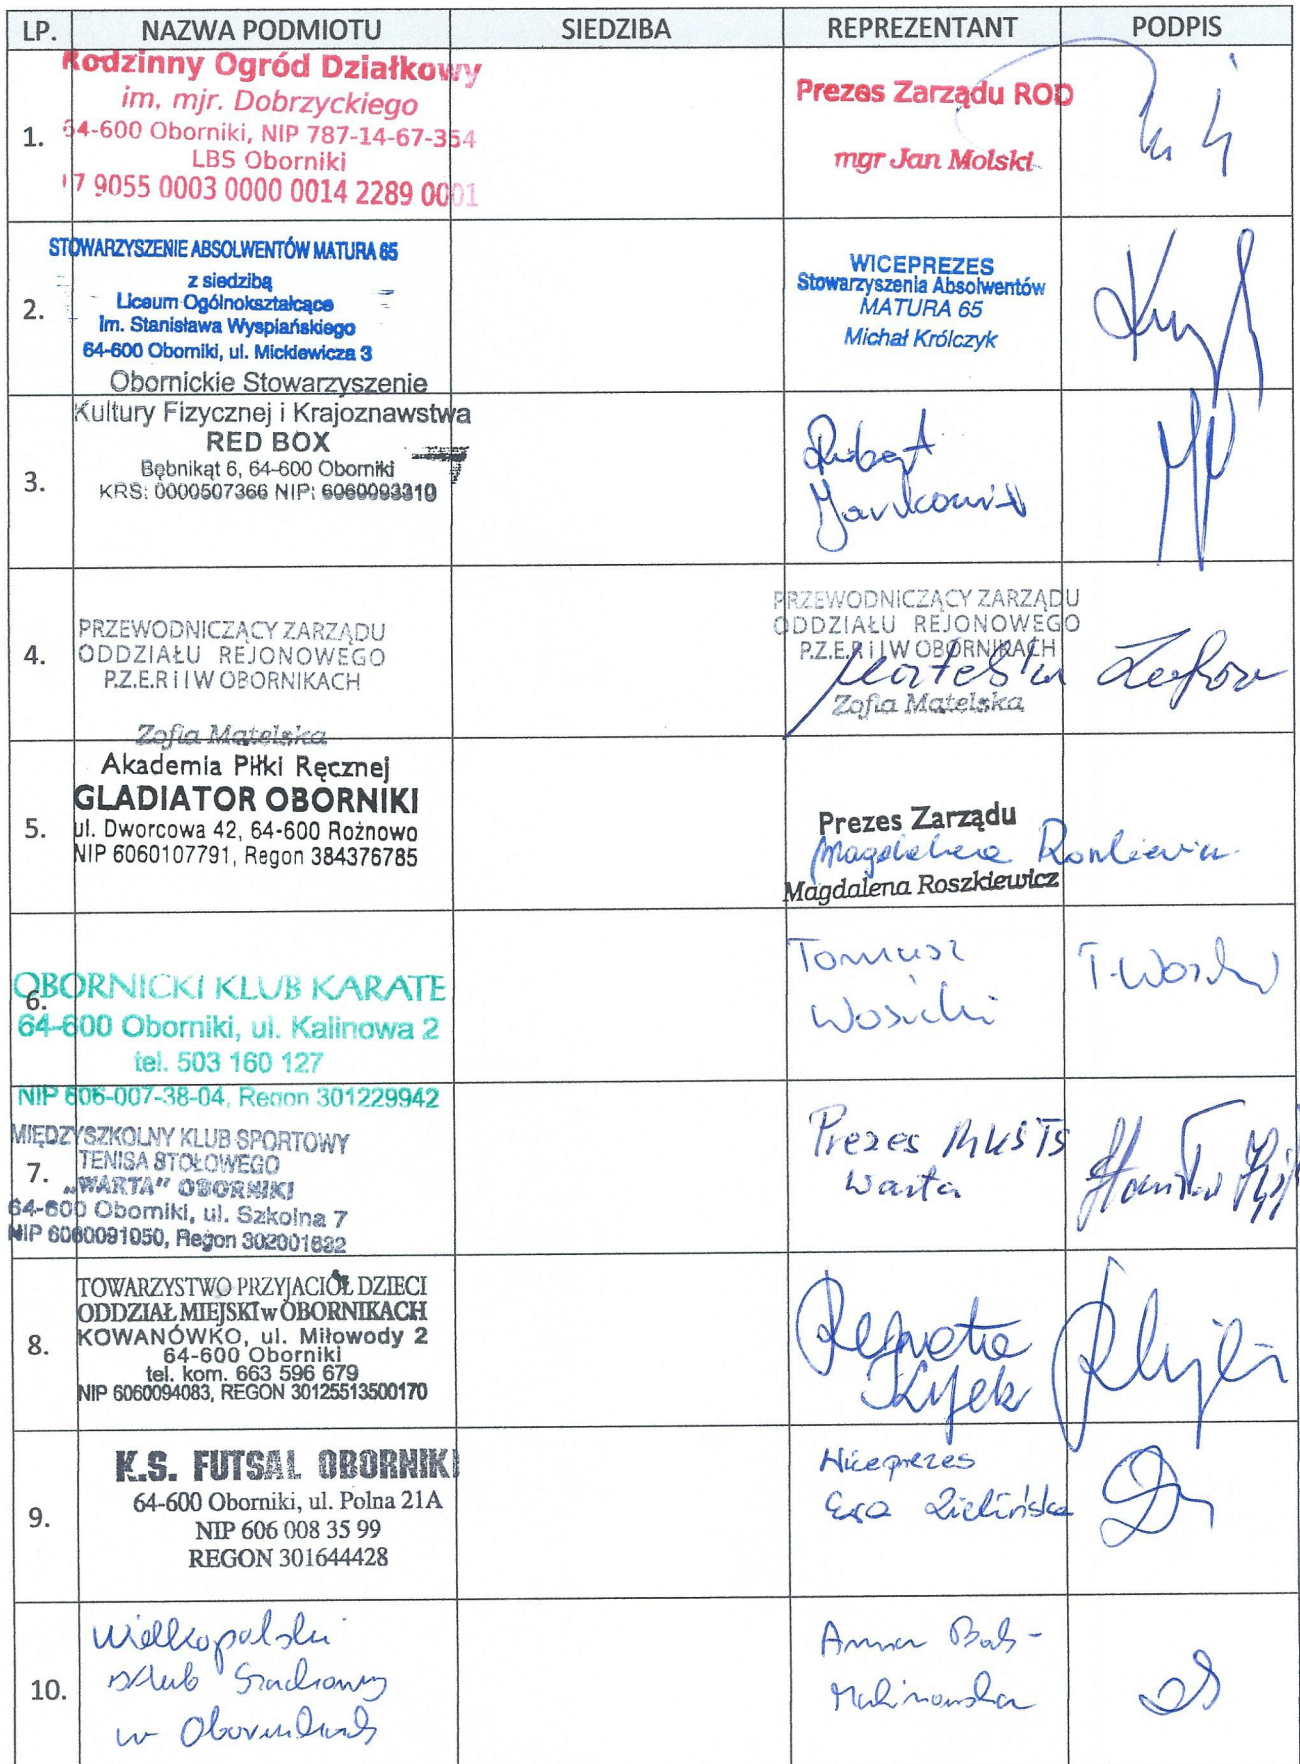 LP. NAZWA PODMIOTU SIEDZIBA REPREZENTANT PODPIS
1.
Rodzinny Ogród Działkowy
im. mjr. Dobrzyckiego
64-600 Oborniki, NIP 787-14-67-354
LBS Oborniki
17 9055 0003 0000 0014 2289 0001
Prezes Zarządu ROD
mgr Jan Molski
2.
STOWARZYSZENIE ABSOLWENTÓW MATURA 65
z siedzibą
Liceum Ogólnokształcące
Im. Stanisława Wyspiańskiego
64-600 Oborniki, ul. Mickiewicza 3
WICEPREZES
Stowarzyszenia Absolwentów
MATURA 65
Michał Królczyk
3.
Obornickie Stowarzyszenie
Kultury Fizycznej i Krajoznawstwa
RED BOX
Bębnikąt 6, 64-600 Oborniki
KRS: 0000507366 NIP: 6060093310
Robert
4.
PRZEWODNICZĄCY ZARZĄDU
ODDZIAŁU REJONOWEGO
P.Z.E.R i I W OBORNIKACH
Zofia Matelska
PRZEWODNICZĄCY ZARZĄDU
ODDZIAŁU REJONOWEGO
P.Z.E.R i I W OBORNIKACH
Zofia Matelska
5.
Akademia Piłki Ręcznej
GLADIATOR OBORNIKI
ul. Dworcowa 42, 64-600 Rożnowo
NIP 6060107791, Regon 384376785
Prezes Zarządu
Magdalena Roszkiewicz
Magdalena Roszkiewicz
6.
OBORNICKI KLUB KARATE
64-600 Oborniki, ul. Kalinowa 2
tel. 503 160 127
NIP 606-007-38-04, Regon 301229942
Tomasz
Wosicki
7.
MIĘDZYSZKOLNY KLUB SPORTOWY
TENISA STOŁOWEGO
„WARTA" OBORNIKI
64-600 Oborniki, ul. Szkolna 7
NIP 6060091050, Regon 302001632
Prezes MKSTS
Warta
8.
TOWARZYSTWO PRZYJACIÓŁ DZIECI
ODDZIAŁ MIEJSKI w OBORNIKACH
KOWANÓWKO, ul. Miłowody 2
64-600 Oborniki
tel. kom. 663 596 679
NIP 6060094083, REGON 30125513500170
Renata
Kyjek
9.
K.S. FUTSAL OBORNIKI
64-600 Oborniki, ul. Polna 21A
NIP 606 008 35 99
REGON 301644428
Wiceprezes
Ewa Zielińska
10.
Wielkopolski
Klub Szachowy
w Obornikach
Anna Bąk-
Malinowska